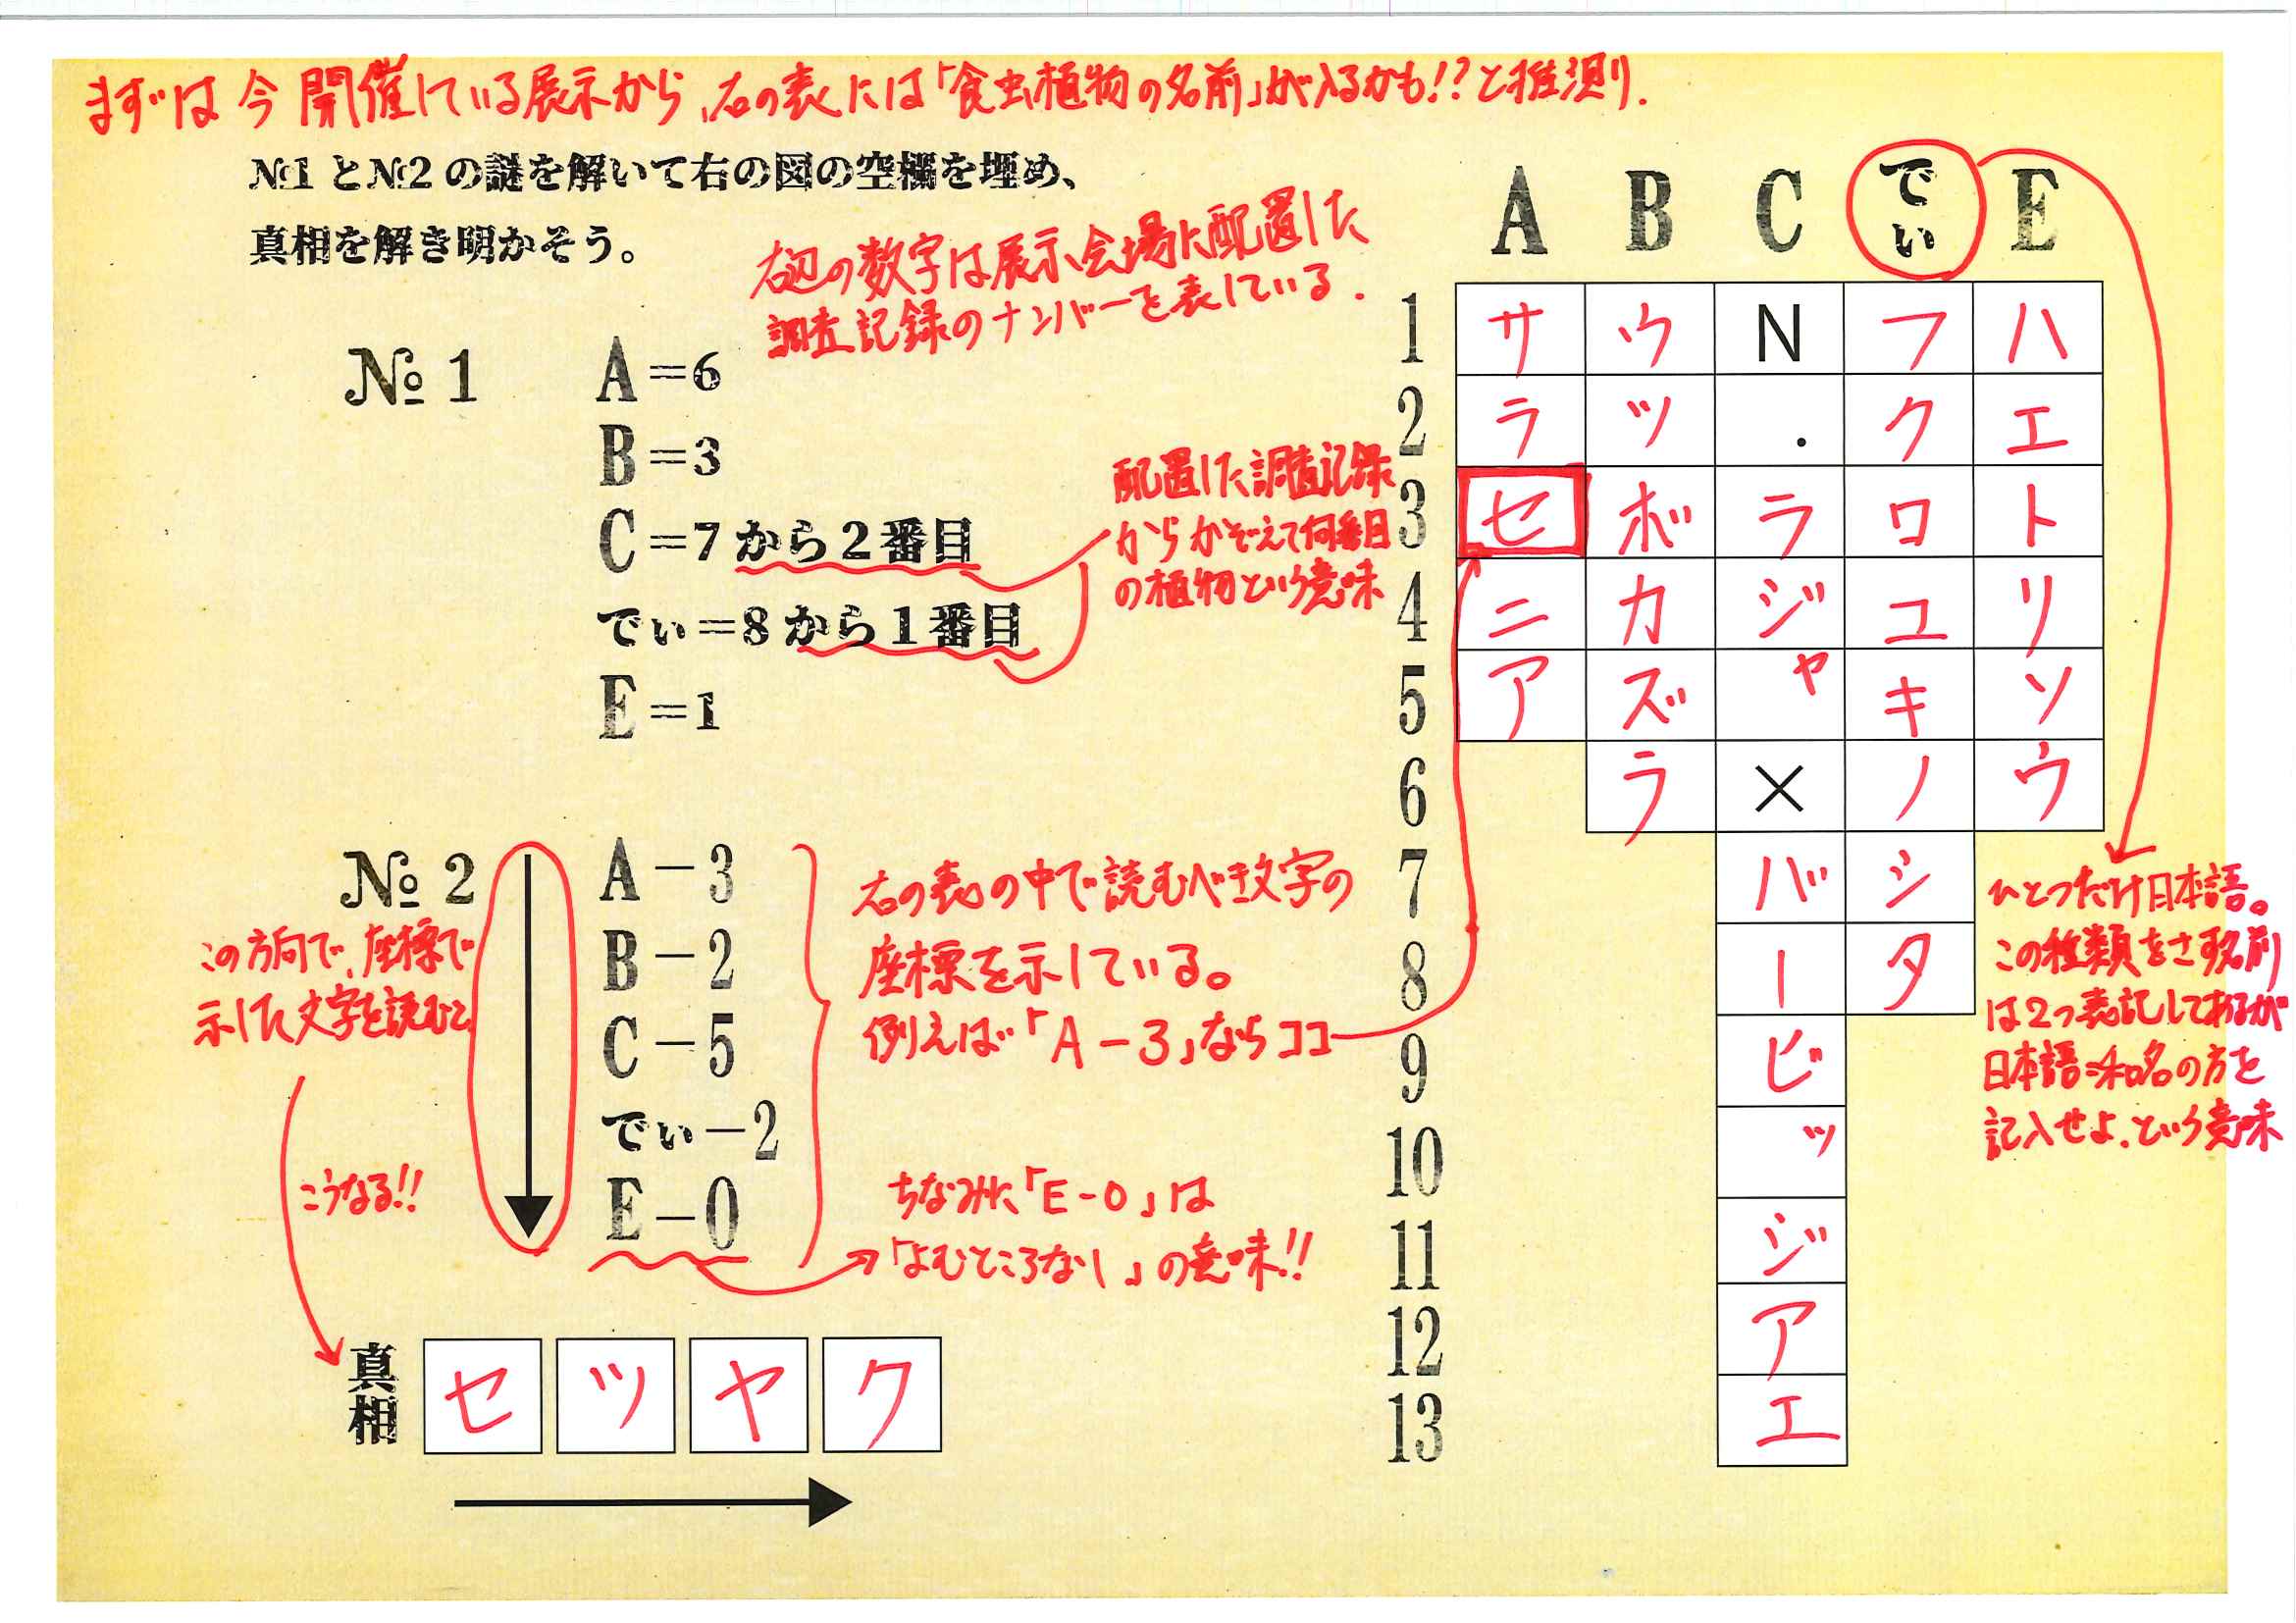 まずは今開催している展示から、右の表には「食虫植物の名前」が入るかも!?と推測.
№1と№2の謎を解いて右の図の空欄を埋め、
真相を解き明かそう。
右辺の数字は展示会場に配置した
調査記録のナンバーを表している.
№1
A=6
B=3
C=7から2番目
でぃ=8から1番目
E=1
配置した調査記録
からかぞえて何番目
の植物という意味
№2
A－3
B－2
C－5
でぃ－2
E－0
この方向で、座標で
示した文字を読むと
こうなる!!
右の表の中で読むべき文字の
座標を示している。
例えば「A－3」ならココ
ちなみに「E－0」は
→「よむところなし」の意味!!
真相
セ ツ ヤ ク
A B C でぃ E
1 サ ウ N フ ハ
2 ラ ツ . ク エ
3 セ ボ ラ ロ ト
4 ニ カ ジ ユ リ
5 ア ズ ャ キ ソ
6 ラ × ノ ウ
7 バ シ
8 ー タ
9 ビ
10 ッ
11 ジ
12 ア
13 エ
ひとつだけ日本語。
この種類をさす名前
は2つ表記してあるが
日本語=和名の方を
記入せよ、という意味